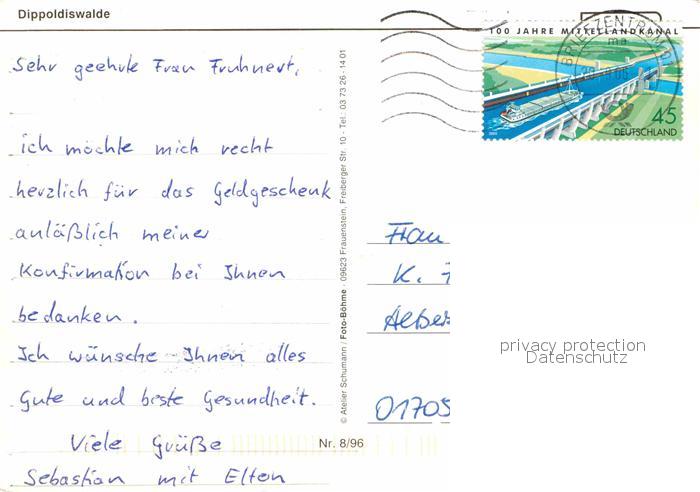 Dippoldiswalde
100 JAHRE MITTELLANDKANAL
BRIEFZENTRUM
45
DEUTSCHLAND
Sehr geehrte Frau Fruhnert,
ich möchte mich recht
herzlich für das Geldgeschenk
anläßlich meiner
Konfirmation bei Ihnen
bedanken.
Ich wünsche Ihnen alles
Gute und beste Gesundheit.
Viele Grüße
Sebastian mit Eltern
© Atelier Schumann / Foto-Böhme - 09623 Frauenstein, Freiberger Str. 10 - Tel.: 03 73 26 - 14 01
Nr. 8/96
Frau
K.
01705
privacy protection
Datenschutz